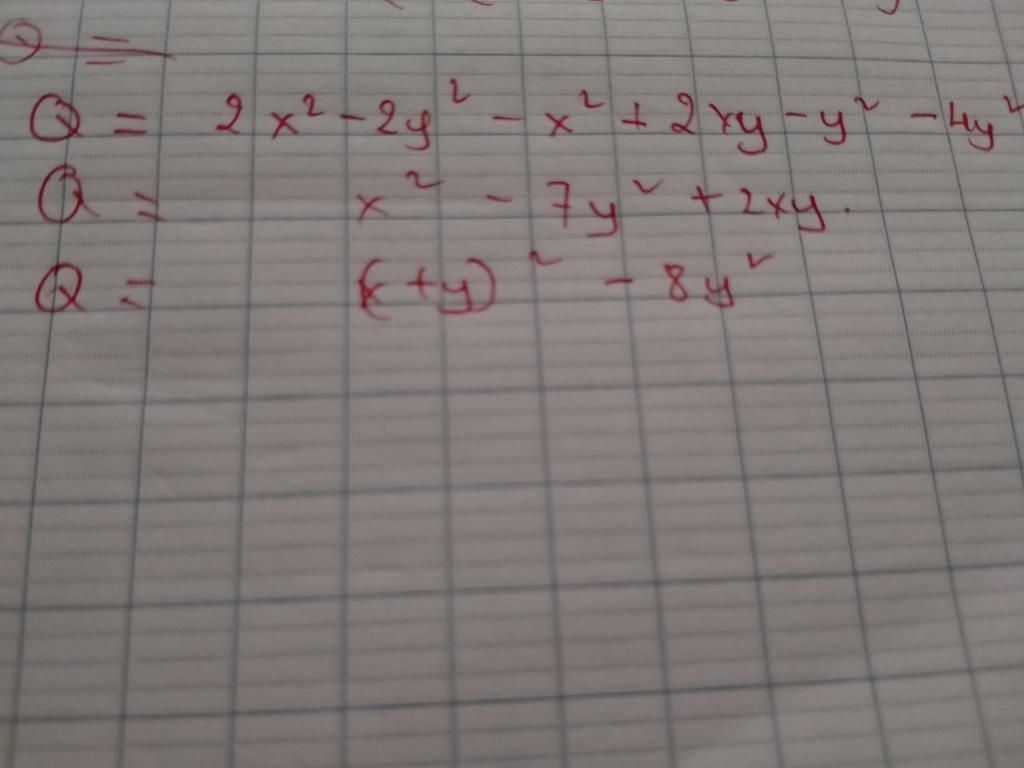 Q =
Q = 2x² - 2y² - x² + 2xy - y² - 4y²
Q = x² - 7y² + 2xy.
Q = (x + y)² - 8y²